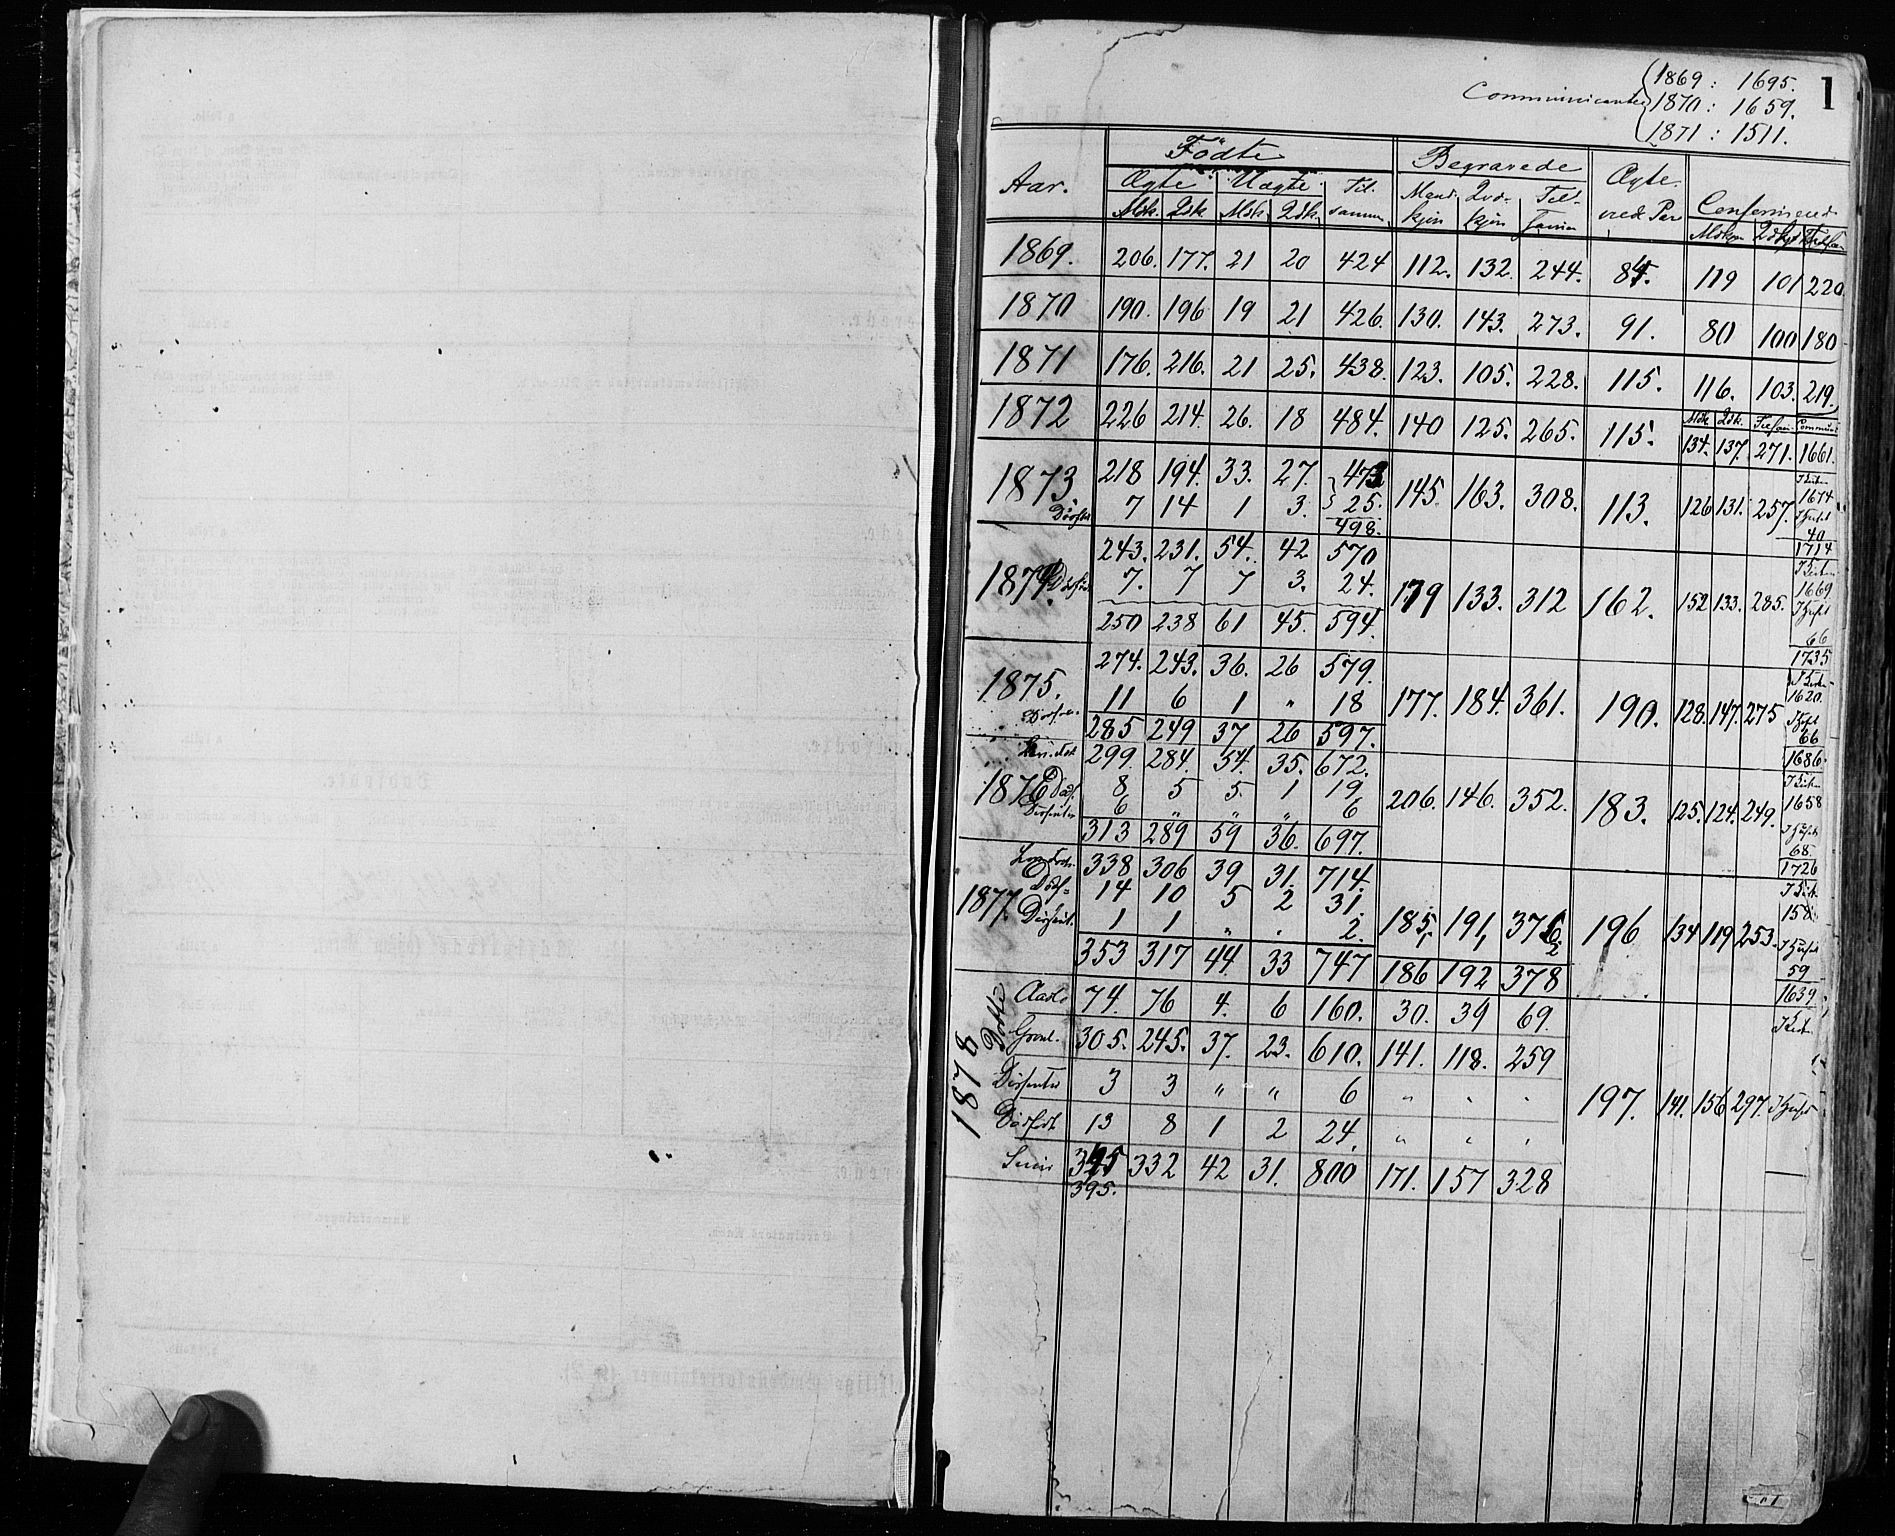 1
1869 : 1695.
Communicanter 1870 : 1659.
1871 : 1511.
Aar. Födte Begravede Ægte- viede Par Confirmerede
Ægte Uægte Til- sammen Mand- kjøn Qvd- kjøn Til- sammen
Mdk. Qdk. Mdk. Qdk.
1869. 206. 177. 21 20 424 112. 132. 244. 84. 119 101 220
1870 190. 196 19 21 426. 130. 143. 273. 91. 80 100 180
1871 176. 216. 21 25. 438. 123. 105. 228. 115. 116. 103. 219.
Mdk. Qdk. Tilsam. Communic.
1872 226 214. 26. 18 484. 140 125. 265. 115. 134. 137. 271. 1661.
1873. 218 194. 33. 27. 473 145. 163. 308. 113. 126 131. 257. 1674
Dödfødt 7 14 1 3. 25. 40
498. 1714
1874. 243. 231. 54. 42 570 179 133. 312 162. 152 133. 285. 1669
Dödfødt 7. 7 7 3. 24. 66
250 238 61 45. 594. 1735
1875. 274. 243. 36. 26 579. 177. 184. 361. 190. 128. 147. 275 1620.
11 6 1 " 18 66
285 249 37 26 597. 1686.
1876 299. 284. 54. 35. 672. 206. 146. 352. 183. 125. 124. 249. 1658
Dödf. 8 5 5. 1 19 68.
Dissenter 6 " " " 6
313 289 59 36. 697. 1726
338 306 39 31. 714.
1877. Dödf= 14 10 5 2 31. 185. 191. 376 196 134 119 253.
Dissent. 1 1 " . 2. 1 1 2 59
353 317 44. 33 747 186 192 378 1639
1878 Döbte Aasl. 74. 76 4. 6 160. 30. 39 69. 197. 141. 156 297.
Grønl. 305. 245. 37. 23. 610. 141. 118. 259
Dissenter 3 3 " " 6 " . .
Dödfødt 13 8 1 2 24. " " .
332 42 31. 800 171. 157 328
395.